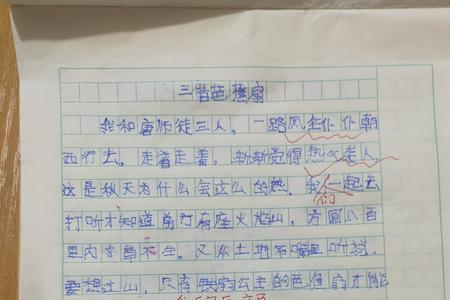 三借芭蕉扇
我和唐师徒三人。一路风尘仆仆朝
西行去。走着走着，渐渐觉得热气
这是秋天为什么会这么的热。我们一起去
打听才知道前行有座火焰山，方圆八百
里内寸草不生。又从土地 嘴里听说，
要想过山，只有铁扇公主的芭蕉扇才能